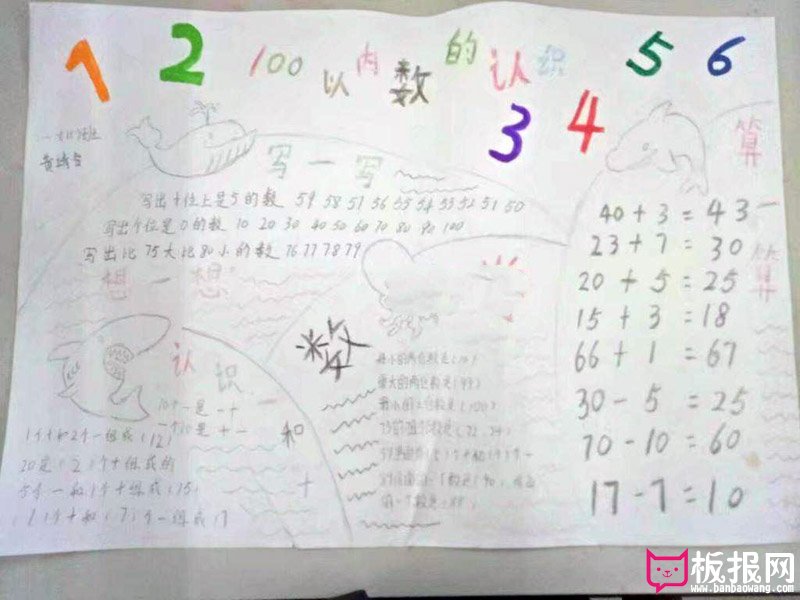 1 2 100以内数的认识 5 6
3 4
写一写
写出十位上是5的数 59 58 57 56 55 54 53 52 51 50
写出个位是0的数 10 20 30 40 50 60 70 80 90 100
写出比75大比80小的数 76 77 78 79
想一想
算一算
40+3=43
23+7=30
20+5=25
15+3=18
66+1=67
30-5=25
70-10=60
17-7=10
认识
一和十
10个一是一十
1个十和2个一组成(12)
20是(2)个十组成的
5个一和1个十组成(15)
(1)个十和(7)个一组成17
数
最小的两位数是(10)
最大的两位数是(99)
最小的三位数是(100)
板报网
www.banbaowang.com